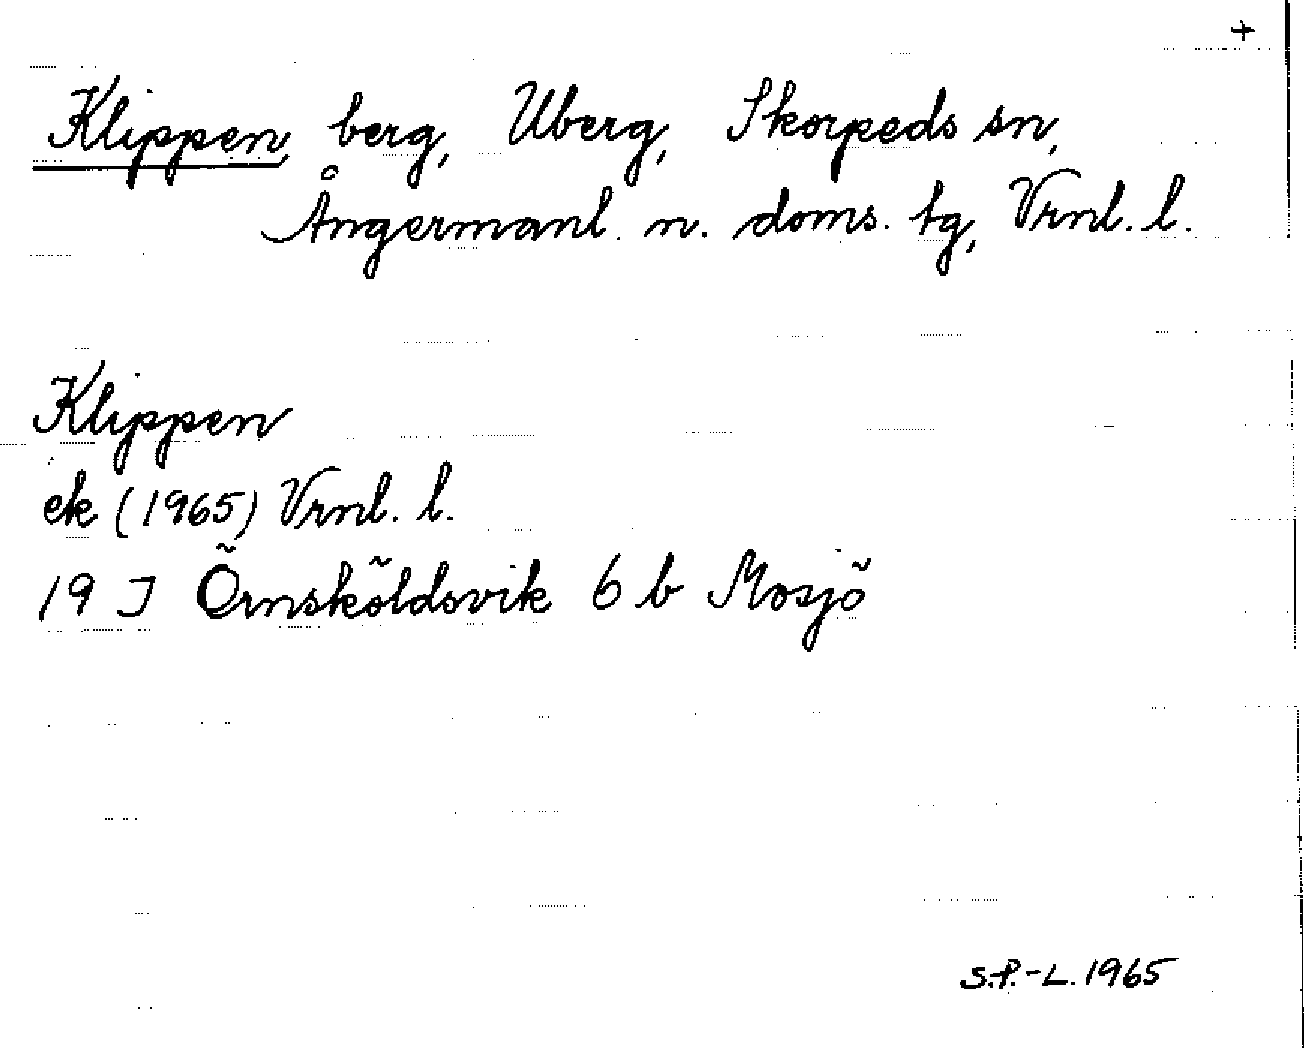 +
Klippen, berg, Uberg, Skorpeds sn,
Ångermanl. n. doms. tg, Vrnl. l.
Klippen
ek (1965) Vrnl. l.
19 J Örnsköldsvik 6 b Mosjö
S.P.-L. 1965